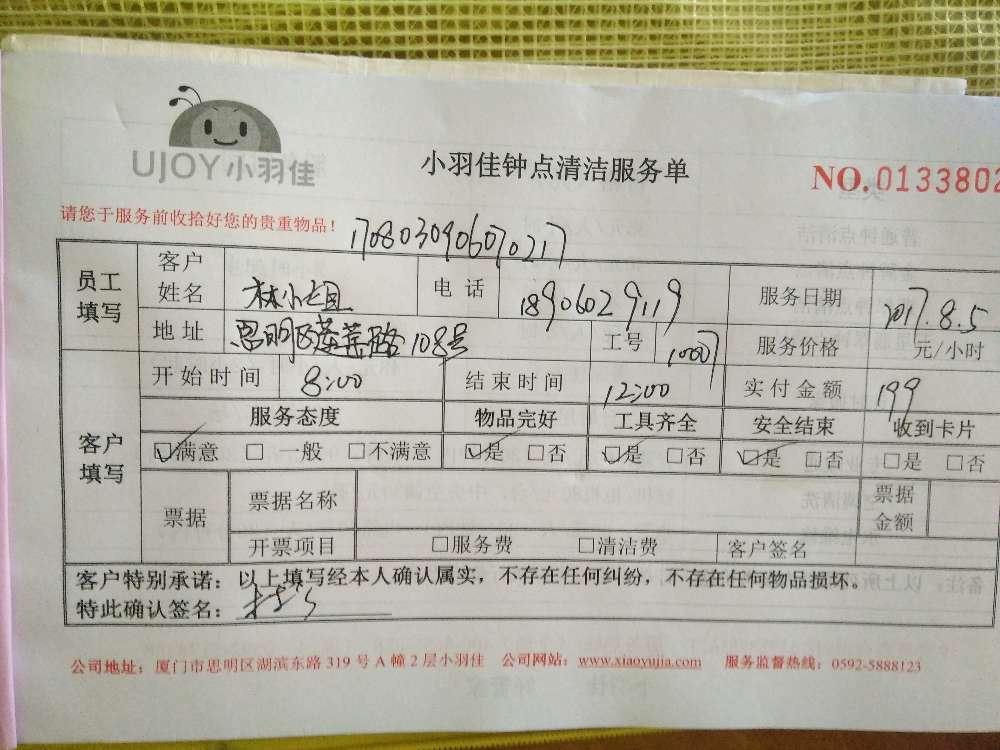 UJOY小羽佳
小羽佳钟点清洁服务单
NO.0133802
请您于服务前收拾好您的贵重物品！
1708030906070217
员工填写 客户姓名 林小姐 电话 18906029119 服务日期 2017.8.5
地址 思明区莲 路108号 工号 10007 服务价格 元/小时
客户填写 开始时间 8:00 结束时间 12:00 实付金额 199
服务态度 物品完好 工具齐全 安全结束 收到卡片
☑满意 □一般 □不满意 ☑是 □否 ☑是 □否 ☑是 □否 □是 □否
票据 票据名称 票据金额
开票项目 □服务费 □清洁费 客户签名
客户特别承诺：以上填写经本人确认属实，不存在任何纠纷，不存在任何物品损坏。
特此确认签名：
公司地址：厦门市思明区湖滨东路 319 号 A 幢 2 层小羽佳 公司网站：www.xiaoyujia.com 服务监督热线：0592-5888123